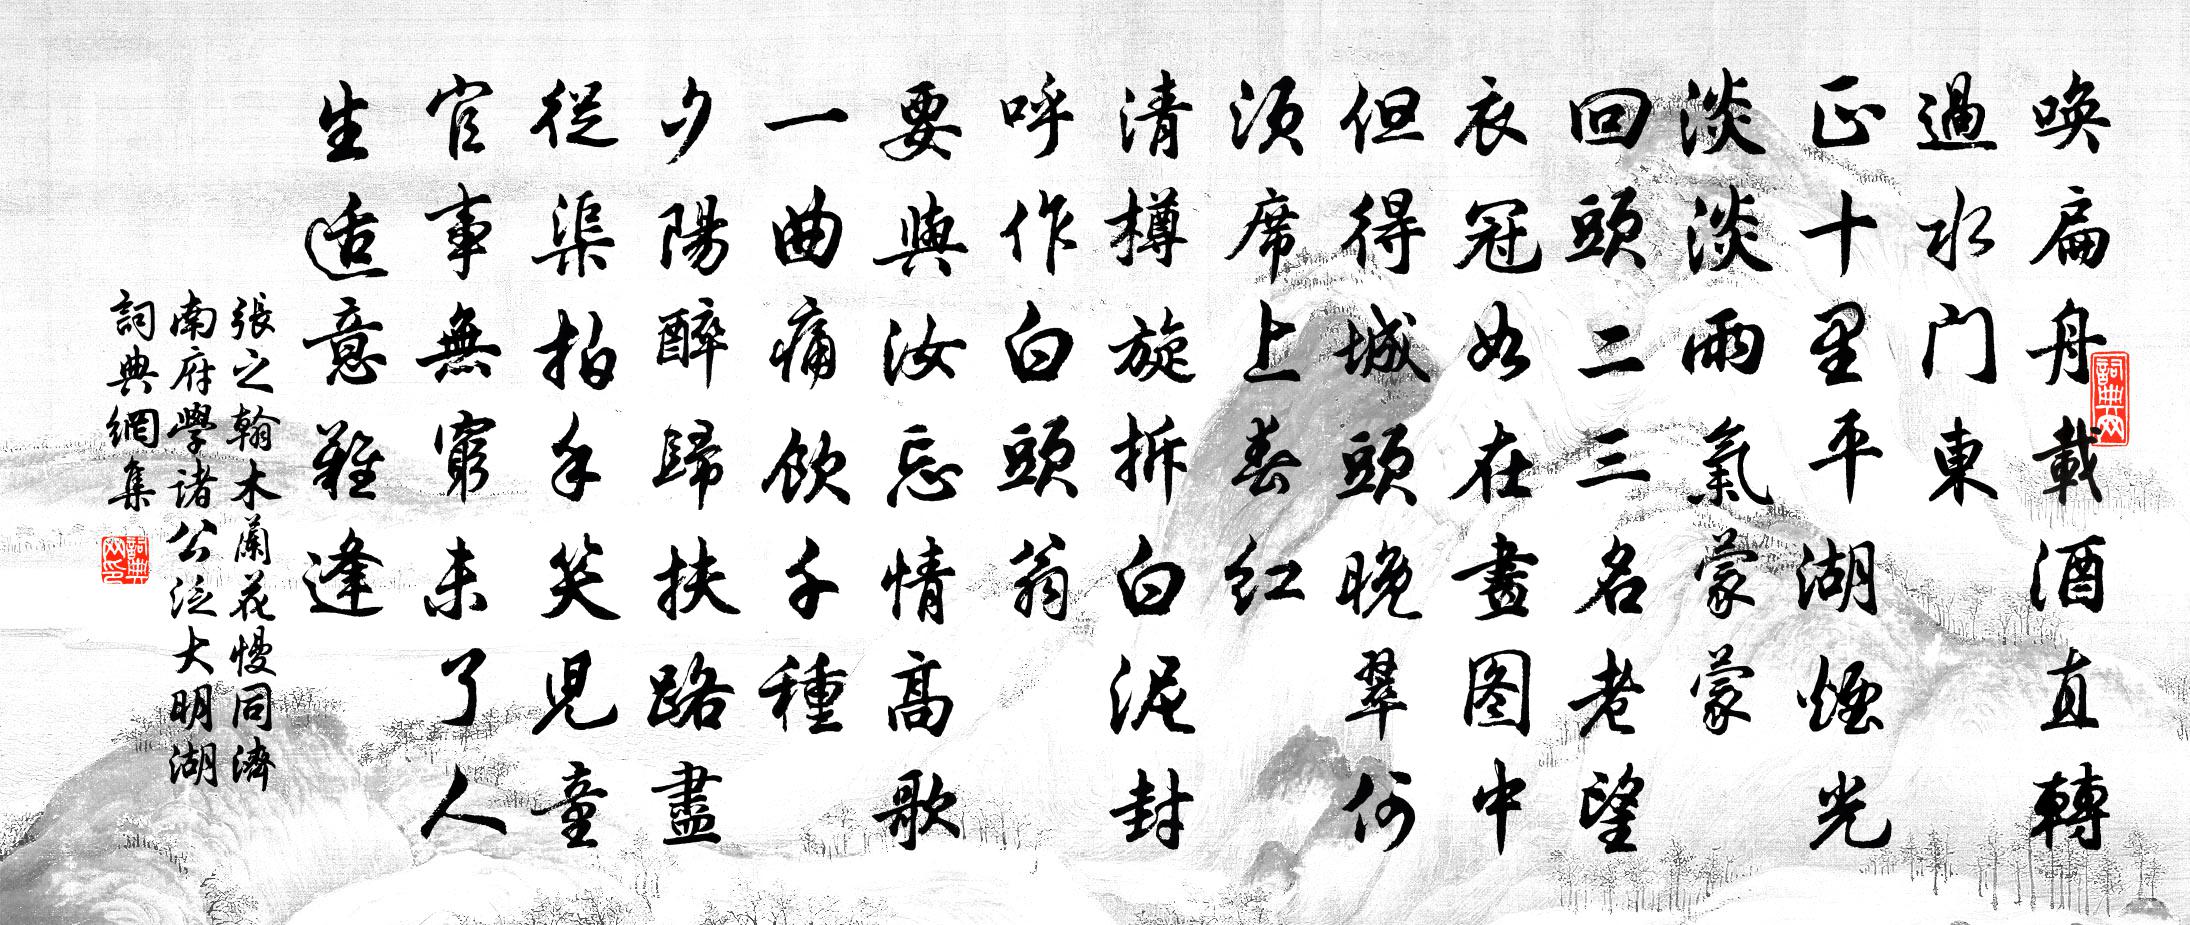 喚扁舟載酒直轉
過水门東
正十里平湖煙光
淡淡雨氣蒙蒙
回頭二三名老望
衣冠如在畫图中
但得城頭晚翠何
須席上春红
清樽旋拆白泥封
呼作白頭翁
要與汝忘情高歌
一曲痛飲千種
夕陽醉歸扶路盡
從渠拍手笑兒童
官事無窮未了人
生适意難逢
張之翰木蘭花慢同濟
南府學诸公泛大明湖
詞典網集